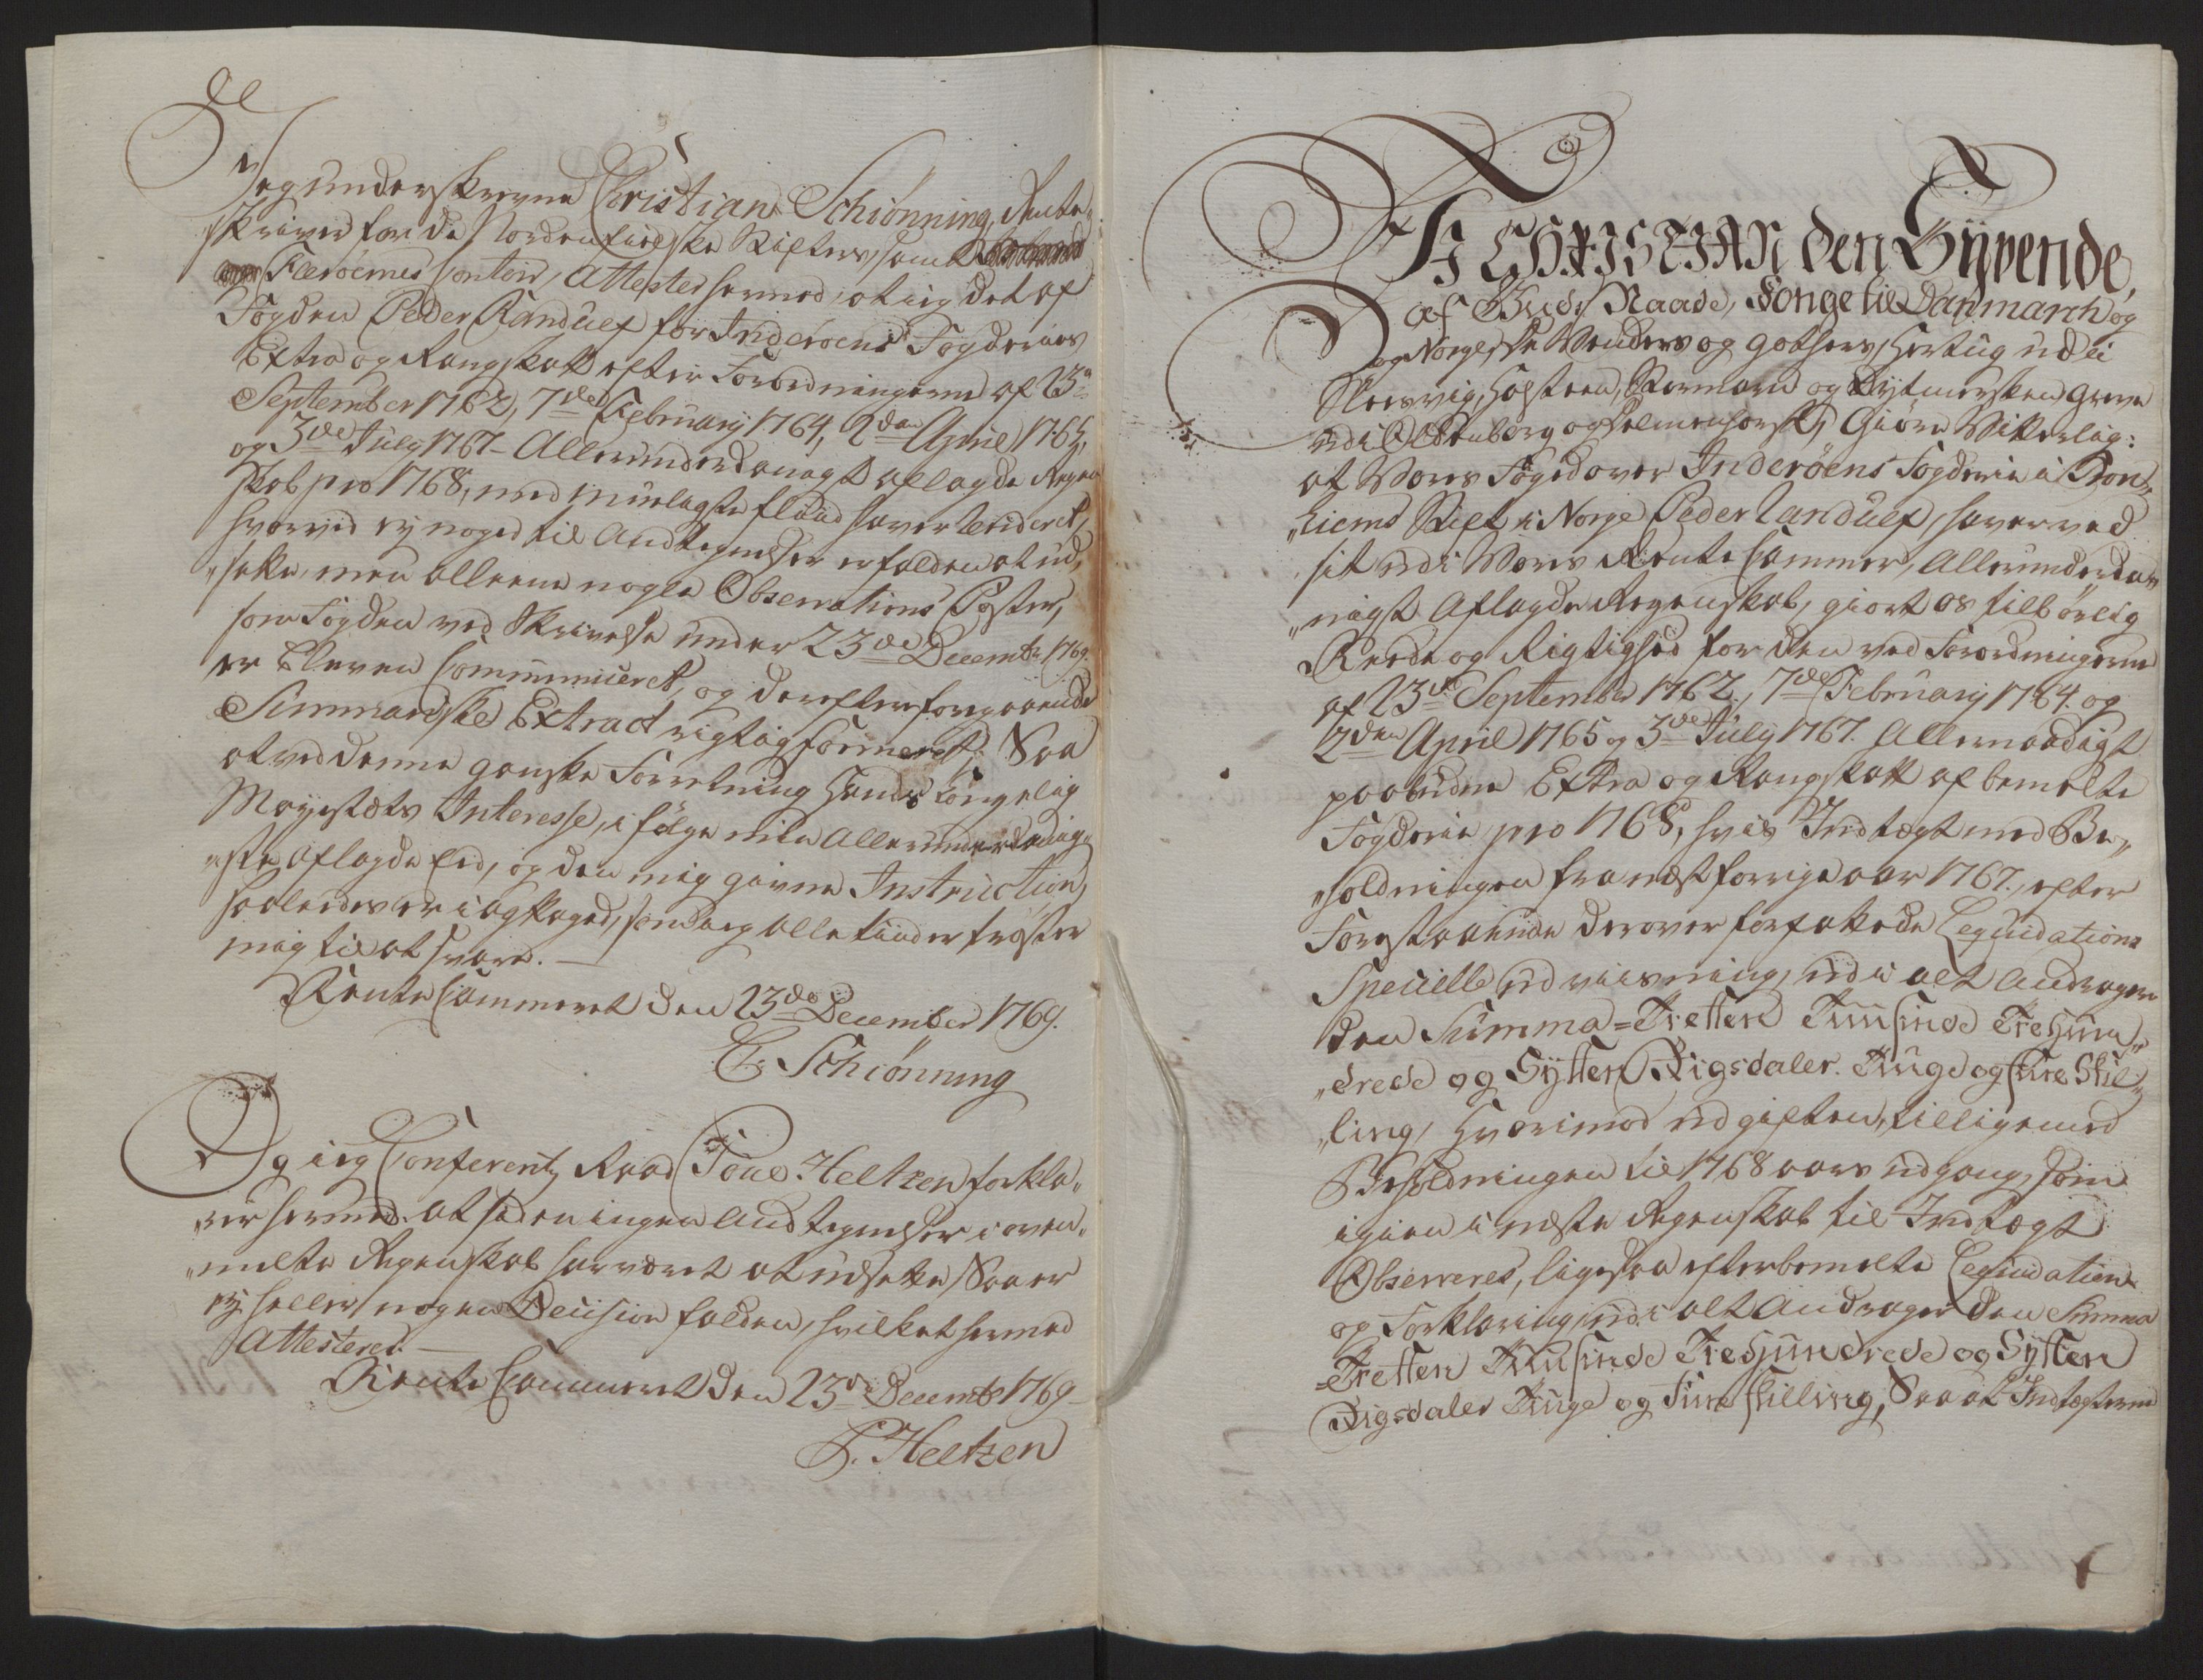 Jeg underskrevne Christian Schiønning, Rente„
„skriver for de Nordenfielske Stifters samt
Færøernes Contoir, Attester hermed, at ieg det af
Fogden Peder Randulf for Inderøens Fogderies
Extra og Rangskatt efter Forordningerne af 23de
September 1762, 7de February 1764, 2den April 1765,
og 3de July 1767 – Allerunderdanigst aflagde Regn„
skab pro 1768, med muelagte fliid haver Revideret,
hvorved ey noget til Andtegnelser er falden at ud„
„sette, men alleene nogle Observations Poster,
som Fogden ved Skrivelse under 23de Decembr 1769.
er bleven Communiceret, og derefter foregaaende
Summariske Extract rigtig formeret; Saa
at ved denne ganske Forretning Hands Kongelig
Mayestæts Interesse, i følge min Allerunderdanig„
„ste aflagde Eed, og den mig givne Instruction,
saaledes er iagttaget, som ieg alle tiider trøster
mig til at svare. —
Rente Cammeret den 23de December 1769.
C. Schiønning
Og ieg Conferentz Raad Poul Heltzen forkla„
„rer hermed at saden ingen Andtegnelser i oven„
„melte Regenskab har været at udsætte, Saa er
ey heller nogen Decision falden, hvilket hermed
Attesteres. —
Rente Cammeret den 23de Decembr 1769 –
P. Heltzen
Vi CHRISTIAN den Syvende,
af Guds Naade, Konge til Danmarch og
og Norge, De Wenders og Gothers, Hertug udi
Slesvig, Holsteen, Stormarn og Dytmersken, Greve
udi Oldenborg og Delmenhorst, Giøre Vitterlig:
at Vores Foged over Inderøens Fogderie i Tron„
„hiems Stift i Norge Peder Randulf, haver ved
sit udi Vores Rente Cammer, Allerunderda„
„nigst Aflagde Regenskab, giort os tilbørlig
Reede og Rigtighed for den ved Forordningerne
af 23de September 1762., 7de February 1764. og
2den April 1765 og 3de July 1767. Allernaadigst
paabudne Extra og Rangskatt af bemelte
Fogderie pro 1768, hvis Indtægt med Be„
„holdningen fra næstforrige aar 1767., efter
Forestaaende derover forfattede Liquidations
Specielle udviisning, udi alt Andrager
den Summa = Tretten Tuusinde Trehun„
„drede og Sytten Rigsdaler. Tiuge og fire Skil„
„ling, Hvorimod udgiften, tilligemed
Beholdningen til 1768 aars udgang, som
igien i næste Regenskab til Indtægt
Observeres, ligesaa efter bemelte Liquidation
og Forklaring, udi alt Andrager den Summa
= Tretten Tuusinde Trehundrede og Sytten
Rigsdaler Tiuge og Fire skilling, Saa at Indtægterne